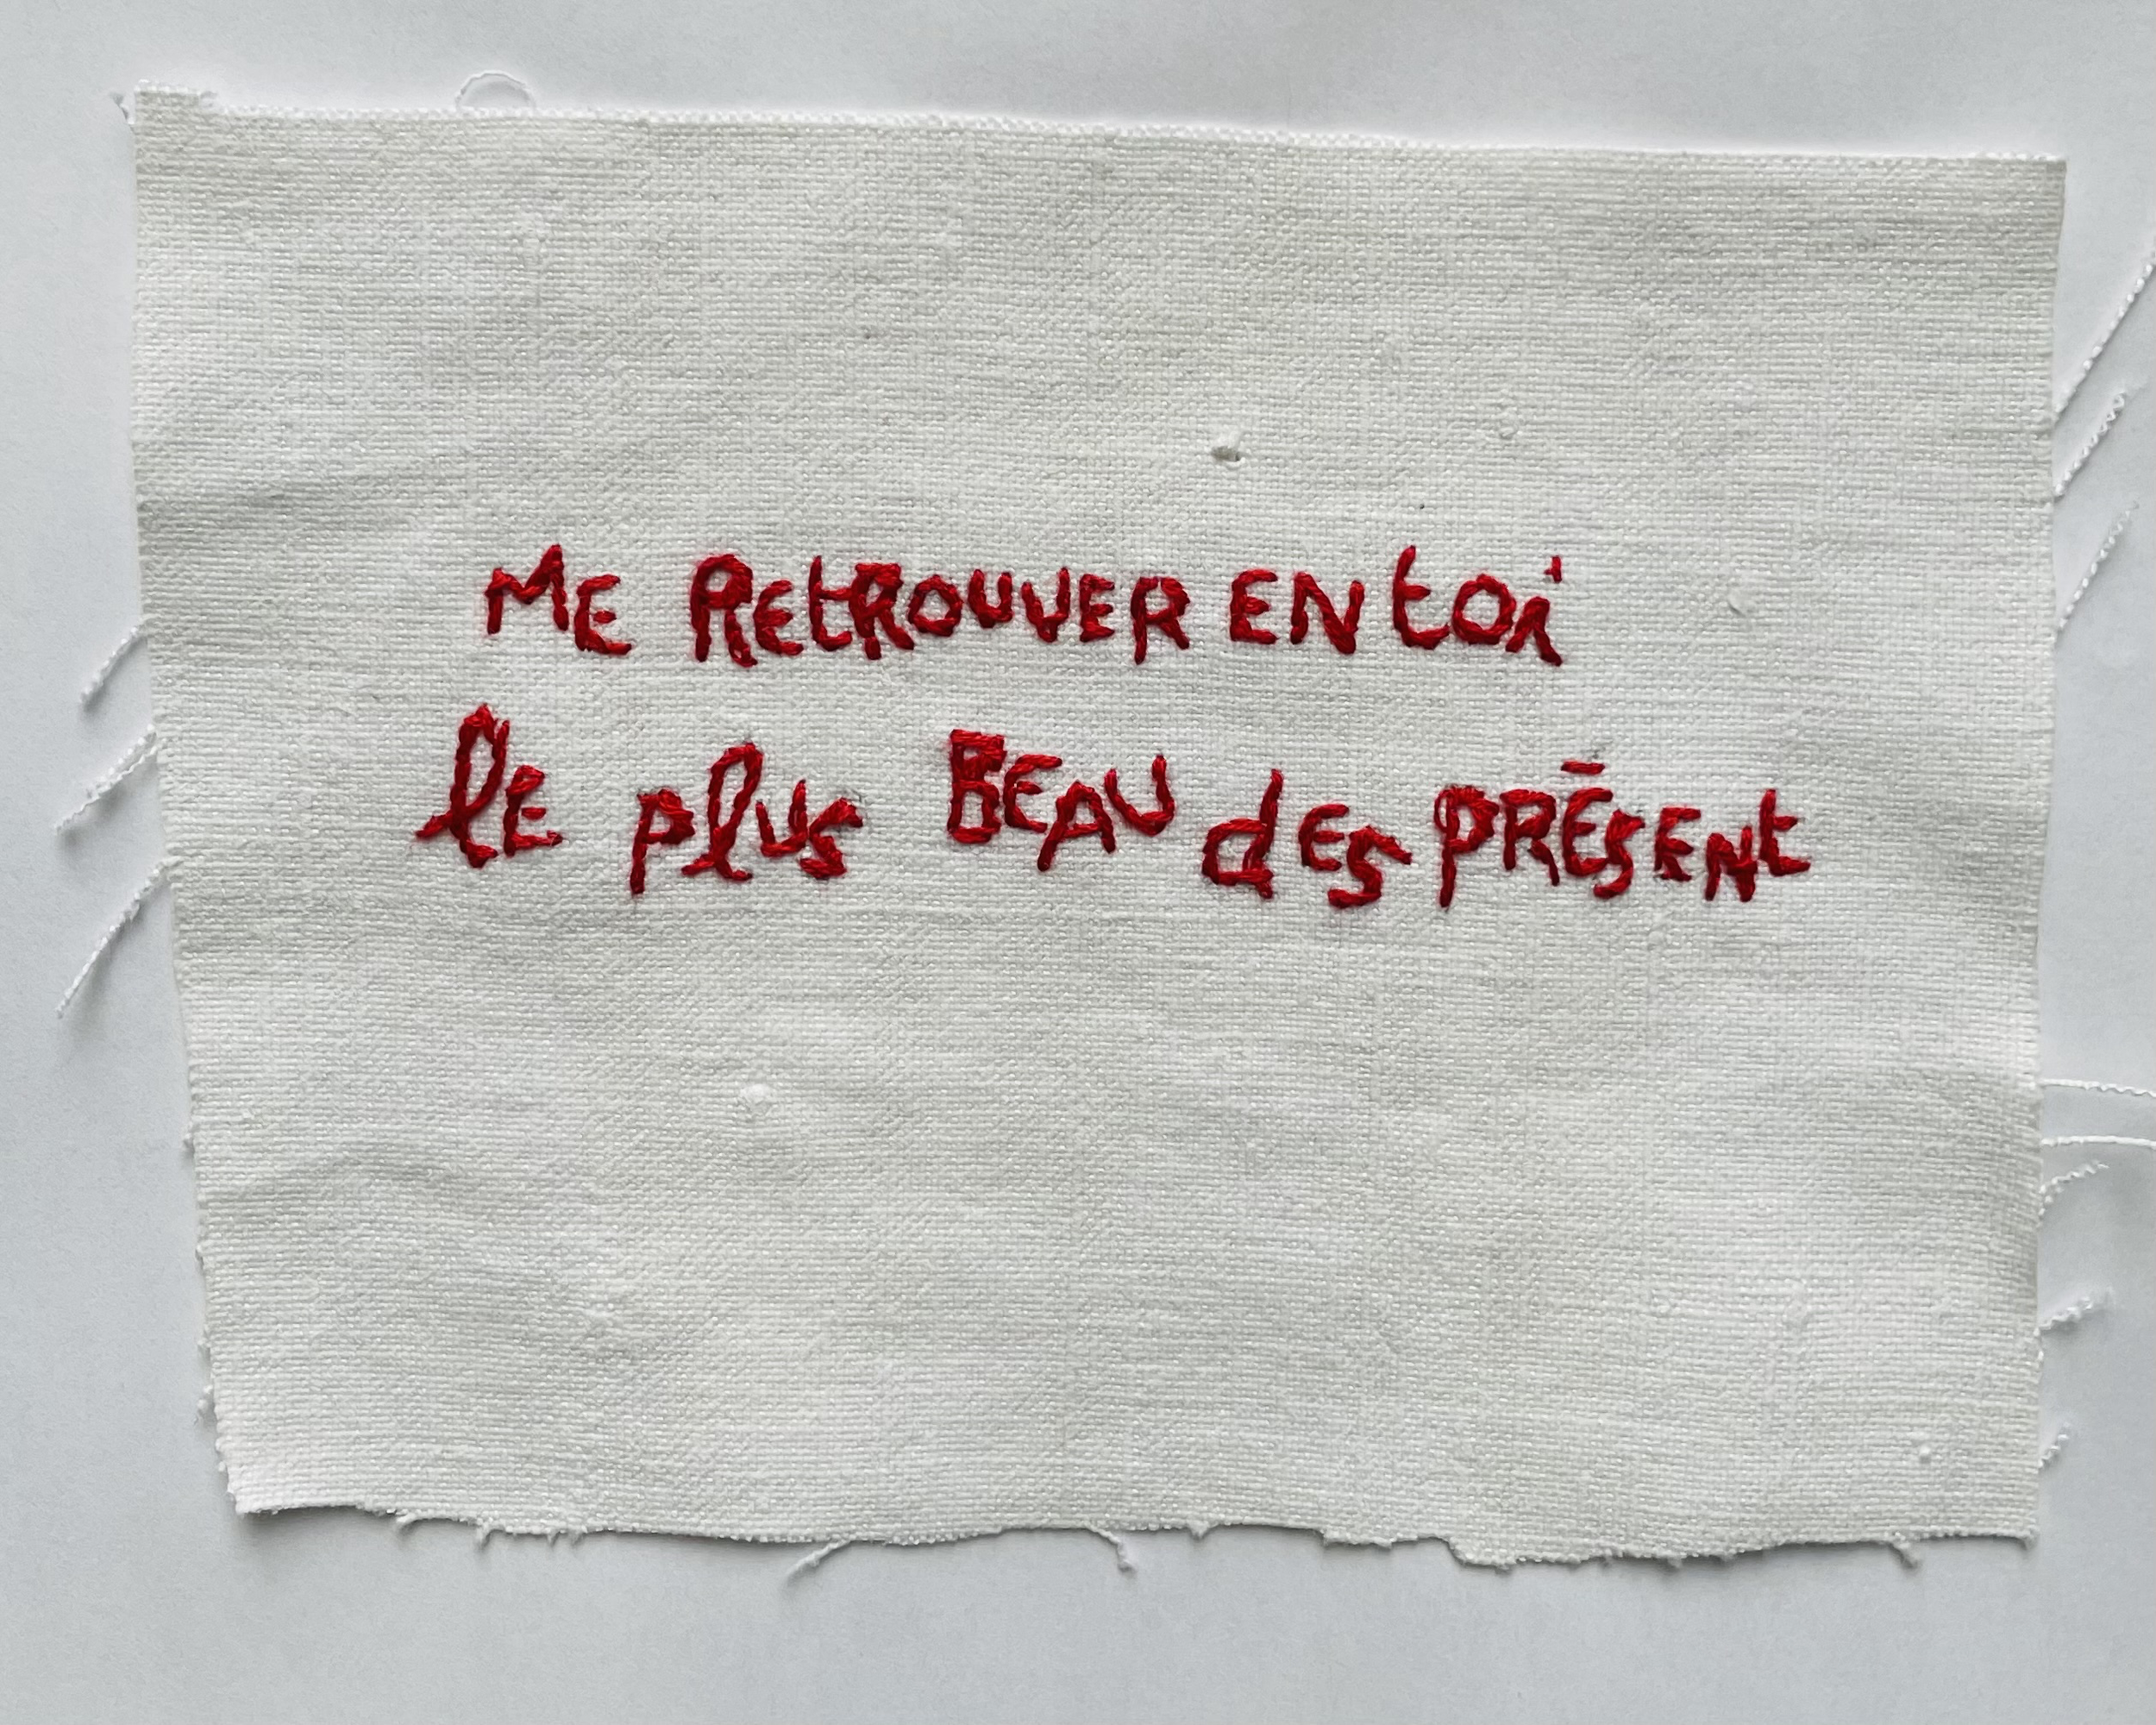 ME REtROUVER EN toi
lE plus BEAU dES PRÉSENt